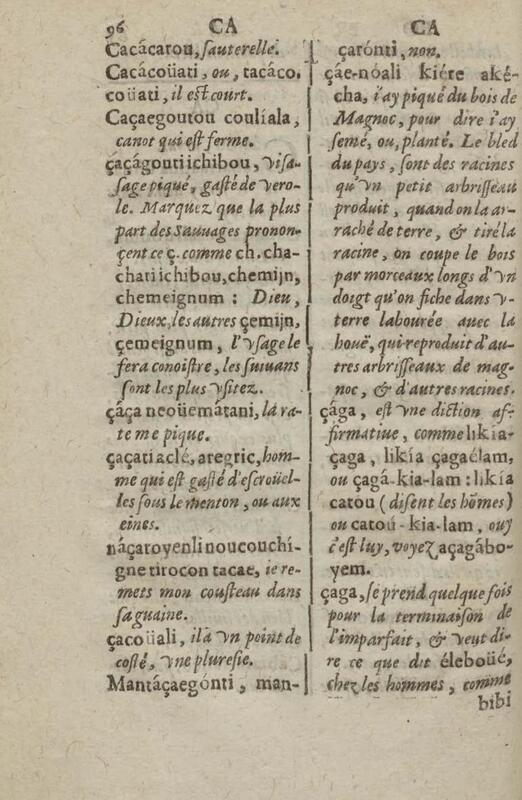 96 CA CA
Cacácarou, sauterelle.
Cacácoüati, ou, tacáco.
coüati, il est court.
Caçaegoutou coulíala,
canot qui est ferme.
çaçágouti ichibou, visa-
sage piqué, gasté de vero-
le. Marquez que la plus
part des Sauuages pronon-
çent ce ç. comme ch. cha-
chati ichibou, chemijn,
chemeignum : Dieu,
Dieux, les autres çemijn,
çemeignum, l'vsage le
fera conoistre, les suiuans
sont les plus vsitez.
çáça neoüemátani, la ra-
te me pique.
çaçati aclé, aregric, hom-
me qui est gasté d'escroüel-
les sous le menton, ou aux
eines.
náçaroyenli noucouchí-
gne tirocon tacae, ie re-
mets mon cousteau dans
sa guaine.
çacoüali, il à vn point de
costé, vne pluresie.
Mantáçaegónti, man-
çarónti, non.
çáe-nóali kiére aké-
cha, i'ay piqué du bois de
Magnoc, pour dire i'ay
semé, ou, planté. Le bled
du pays, sont des racines
qu'vn petit arbrisseau
produit, quand on la ar-
raché de terre, & tiré la
racine, on coupe le bois
par morceaux longs d'vn
doigt qu'on fiche dans v-
terre labourée auec la
houë, qui reproduit d'au-
tres arbrisseaux de mag-
noc, & d'autres racines.
çága, est vne diction af-
firmatiue, comme likia-
çaga, likía çagaélam,
ou çagá-kia-lam : likía
catou (disent les hõmes)
ou catou-kia-lam, ouy
c'est luy, voyez açagábo-
yem.
çaga, se prend quelque fois
pour la terminaison de
l'imparfait, & veut di-
re ce que dit éleboüé,
chez les hommes, comme
bibi